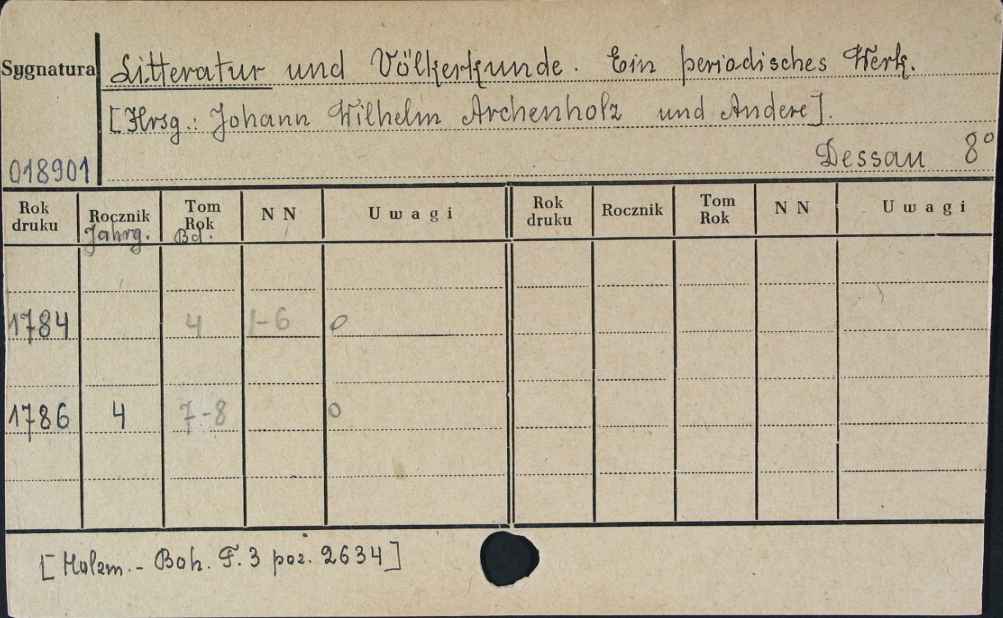 Sygnatura Litteratur und Völkerkunde. Ein periodisches Werk.
[Hrsg.: Johann Wilhelm Archenholz und Andere].
018901 Dessau 8°
Rok druku Rocznik Jahrg. Tom Rok Bd. N N Uwagi Rok druku Rocznik Tom Rok N N Uwagi
1784 4 1-6 0
1786 4 7-8 0
[Holzm.- Boh. T. 3 poz. 2634]